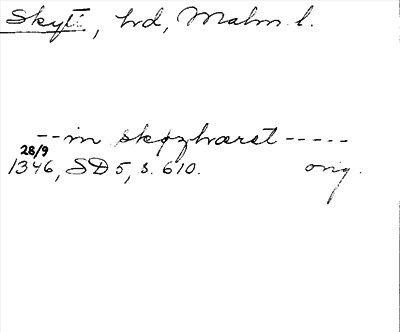 Skytts, hd, Malm. l.
--in skøzhæræt-----
28/9
1346, SD 5, s. 610. orig.